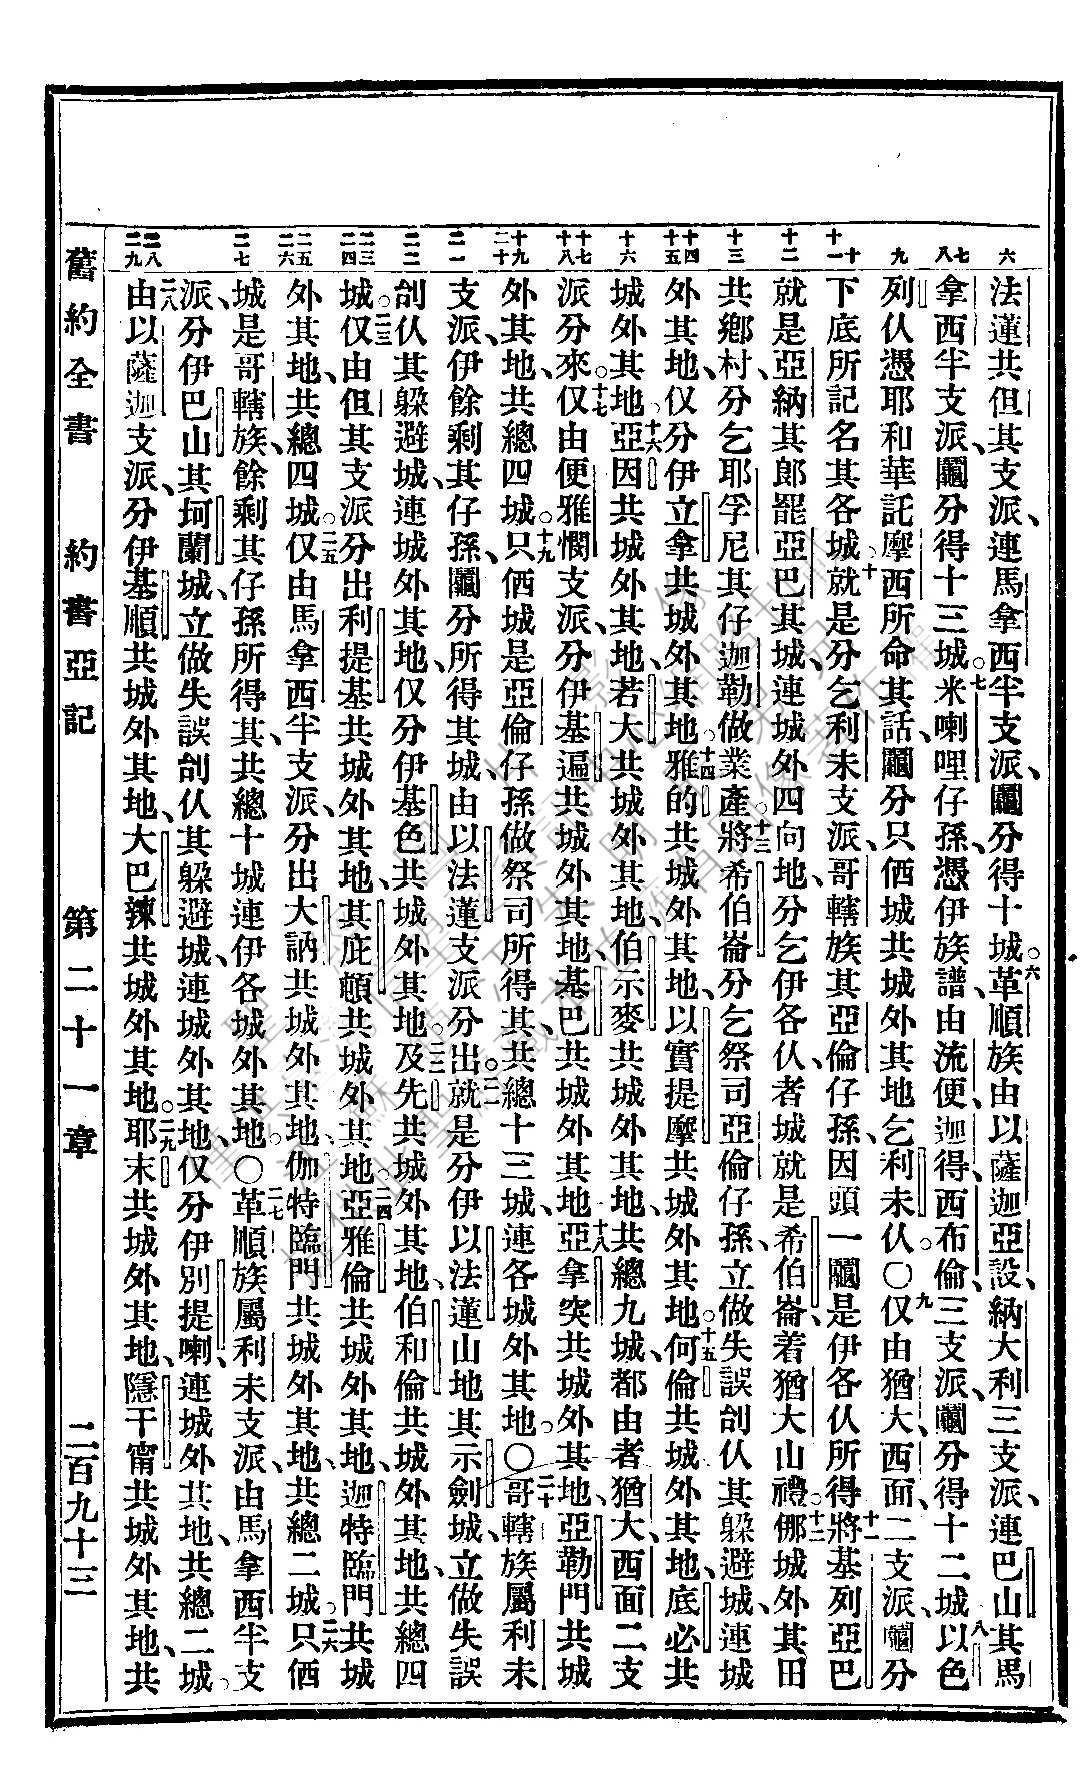 法蓮共但其支派、連馬拿西半支派、鬮分得十城。六革順族由以薩迦、亞設、納大利三支派、連巴山其馬
拿西半支派、鬮分得十三城。七米喇哩仔孫、憑伊族譜、由流便、迦得、西布倫、三支派、鬮分得十二城。八以色
列仈憑耶和華託摩西所命其話、鬮分只徆城共城外其地、乞利未仈。〇九仅由猶大、西面、二支派、鬮分
下底所記名其各城。十就是分乞利未支派、哥轄族其亞倫仔孫、因頭一鬮是伊各仈所得。十一將基列亞巴
就是亞納其郎罷亞巴其城、連城外四向地、分乞伊各仈者城就是希伯崙、着猶大山禮。十二那城外其田
共鄉村、分乞耶孚尼其仔迦勒做業產。十三將希伯崙分乞祭司亞倫仔孫、立做失誤刣仈其躲避城、連城
外其地、仅分伊立拿共城外其地。十四雅的共城外其地、以實提摩共城外其地。十五何倫共城外其地、底必共
城外其地。十六亞因共城外其地、若大共城外其地、伯示麥共城外其地、共總九城、都由者猶大、西面二支
派分來。十七仅由便雅憫支派、分伊基遍共城外其地、基巴共城外其地。十八亞拿突共城外其地、亞勒門共城
外其地、共總四城。十九只徆城是亞倫仔孫做祭司所得其、共總十三城、連各城外其地。〇二十哥轄族屬利未
支派、伊餘剩其仔孫、鬮分所得其城、由以法蓮支派分出。二一就是分伊以法蓮山地其示劍城、立做失誤
刣仈其躲避城、連城外其地、仅分伊基色共城外其地。二二及先共城外其地、伯和倫共城外其地、共總四
城。二三仅由但其支派分出利提基共城外其地、其庇頓共城外其地。二四亞雅倫共城外其地、迦特臨門共城
外其地、共總四城。二五仅由馬拿西半支派、分出大訥共城外其地、伽特臨門共城外其地、共總二城。二六只徆
城是哥轄族、餘剩其仔孫所得其、共總十城、連伊各城外其地。〇二七革順族屬利未支派、由馬拿西半支
派、分伊巴山其坷蘭城、立做失誤刣仈其躲避城、連城外其地、仅分伊別提喇、連城外其地、共總二城。
二八由以薩迦支派、分伊基順共城外其地、大巴辣共城外其地。二九耶末共城外其地、隱干甯共城外其地、共
舊約全書 約書亞記 第二十一章 二百九十三